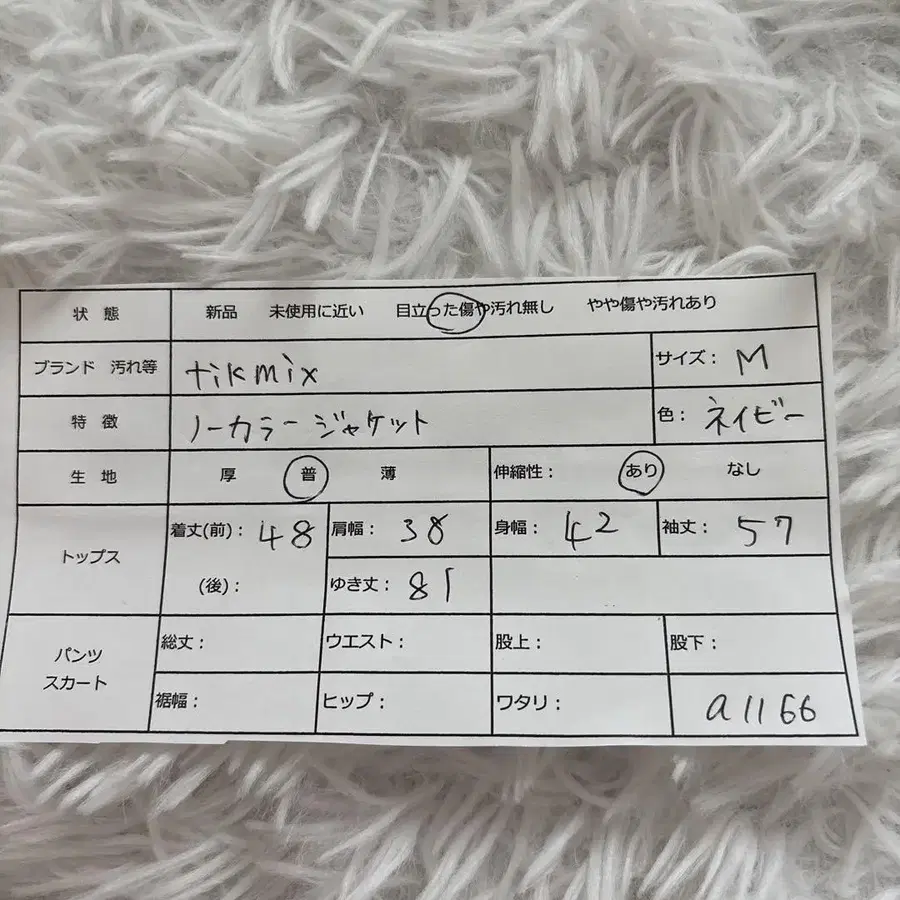 状 態 新品 未使用に近い 目立った傷や汚れ無し やや傷や汚れあり
ブランド 汚れ等 tikmix サイズ: M
特 徴 ノーカラージャケット 色: ネイビー
生 地 厚 普 薄 伸縮性: あり なし
トップス 着丈(前): 48 肩幅: 38 身幅: 42 袖丈: 57
(後): ゆき丈: 81
パンツ スカート 総丈: ウエスト: 股上: 股下:
裾幅: ヒップ: ワタリ: a1166